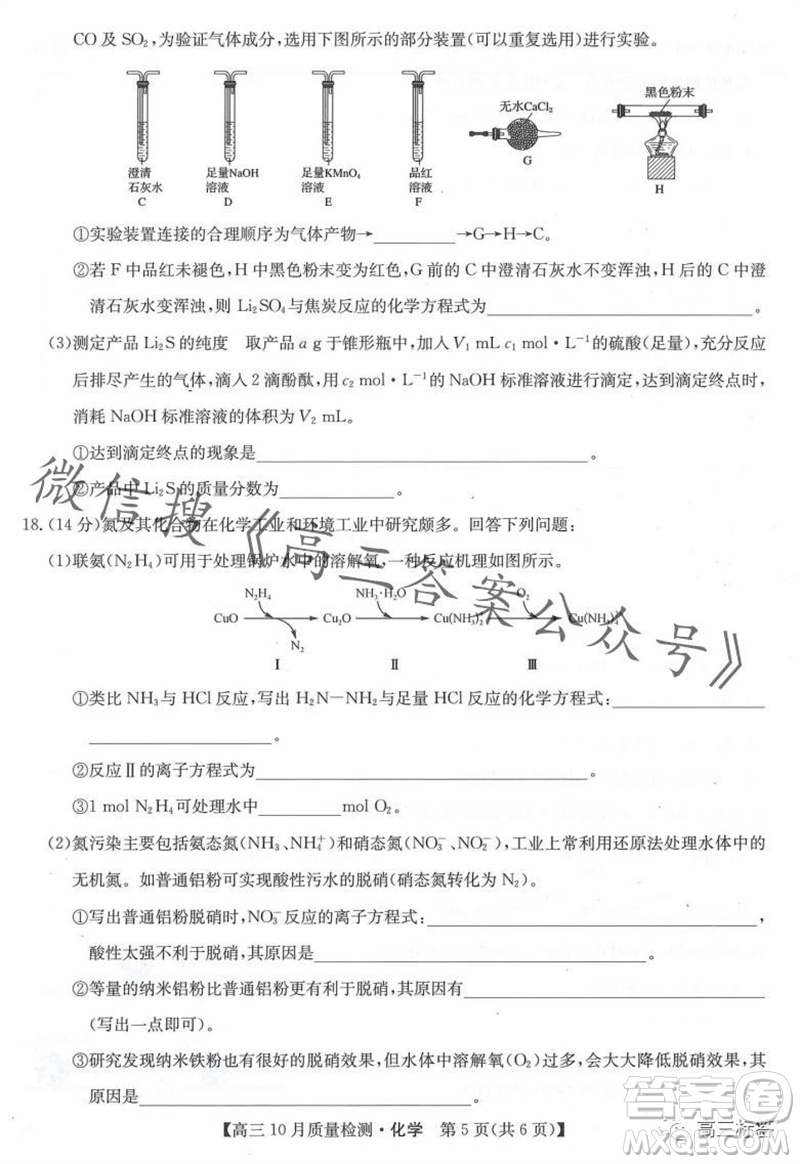 CO 及 SO₂,为验证气体成分,选用下图所示的部分装置(可以重复选用)进行实验。
澄清
石灰水
C
足量NaOH
溶液
D
足量KMnO₄
溶液
E
品红
溶液
F
无水CaCl₂
G
黑色粉末
H
①实验装置连接的合理顺序为气体产物→________→G→H→C。
②若 F 中品红未褪色,H 中黑色粉末变为红色,C 中澄清石灰水不变浑浊,H 中澄
清石灰水变浑浊,则 Li₂SO₄与焦炭反应的化学方程式为________。
(3)测定产品 Li₂S 的纯度 取产品 a g 于锥形瓶中,加入 V₁ mL c₁ mol·L⁻¹的硫酸(足量),充分反应
后排尽产生的气体,滴入 2 滴酚酞,用 c₂ mol·L⁻¹的 NaOH 标准溶液进行滴定,达到滴定终点时,
消耗 NaOH 标准溶液的体积为 V₂ mL。
①达到滴定终点的现象是________。
②产品中 Li₂S 的质量分数为________。
18.(14 分)氮及其化合物在化学工业和环境工业中研究颇多。回答下列问题:
(1)联氨(N₂H₄)可用于处理锅炉水中的溶解氧,一种反应机理如图所示。
N₂H₄ NH₃·H₂O O₂
CuO Cu₂O Cu(NH₃)₂⁺ Cu(NH₃)₄²⁺
N₂
Ⅰ Ⅱ Ⅲ
①类比 NH₃与 HCl 反应,写出 H₂N—NH₂与足量 HCl 反应的化学方程式:________
________。
②反应Ⅱ的离子方程式为________。
③1 mol N₂H₄可处理水中________mol O₂。
(2)氮污染主要包括氨态氮(NH₃、NH₄⁺)和硝态氮(NO₃⁻、NO₂⁻),工业上常利用还原法处理水体中的
无机氮。如普通铝粉可实现酸性污水的脱硝(硝态氮转化为 N₂)。
①写出普通铝粉脱硝时,NO₃⁻反应的离子方程式:________,
酸性太强不利于脱硝,其原因是________。
②等量的纳米铝粉比普通铝粉更有利于脱硝,其原因是________
(写出一点即可)。
③研究发现纳米铁粉也有很好的脱硝效果,但水体中溶解氧(O₂)过多,会大大降低脱硝效果,
其原因是________。
【高三 10 月质量检测·化学 第 5 页(共 6 页)】
微信搜《高三答案公众号》
答案圈
高三标答